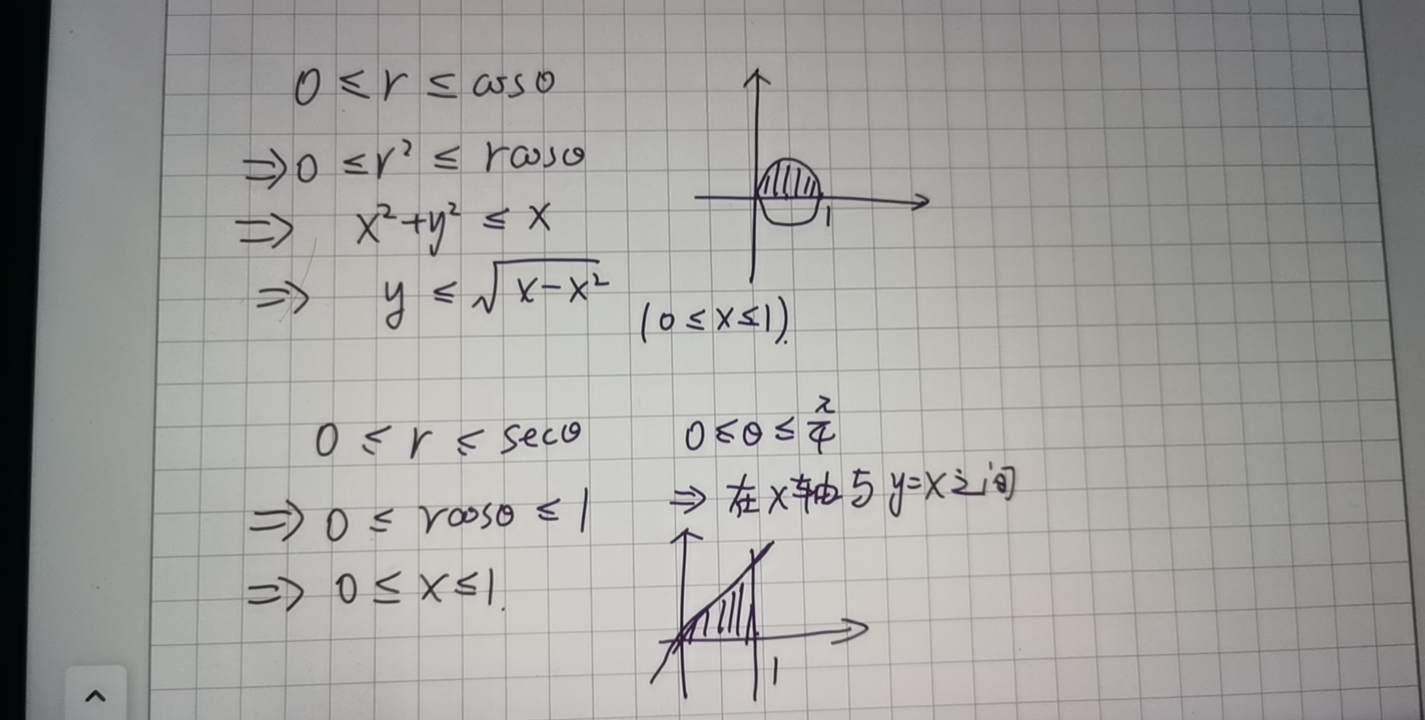 0 ≤ r ≤ cosθ
⇒ 0 ≤ r² ≤ rcosθ
⇒ x²+y² ≤ x
⇒ y ≤ √(x-x²) (0 ≤ x ≤ 1).
1
0 ≤ r ≤ secθ 0 ≤ θ ≤ π/4
⇒ 0 ≤ rcosθ ≤ 1 ⇒ 在x轴与y=x之间
⇒ 0 ≤ x ≤ 1.
1